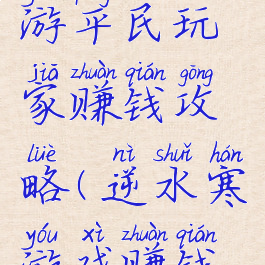 游平民玩
jiā zhuàn qián gōng
家赚钱攻
lüè nì shuǐ hán
略(逆水寒
yóu xì zhuàn qián
游戏赚钱